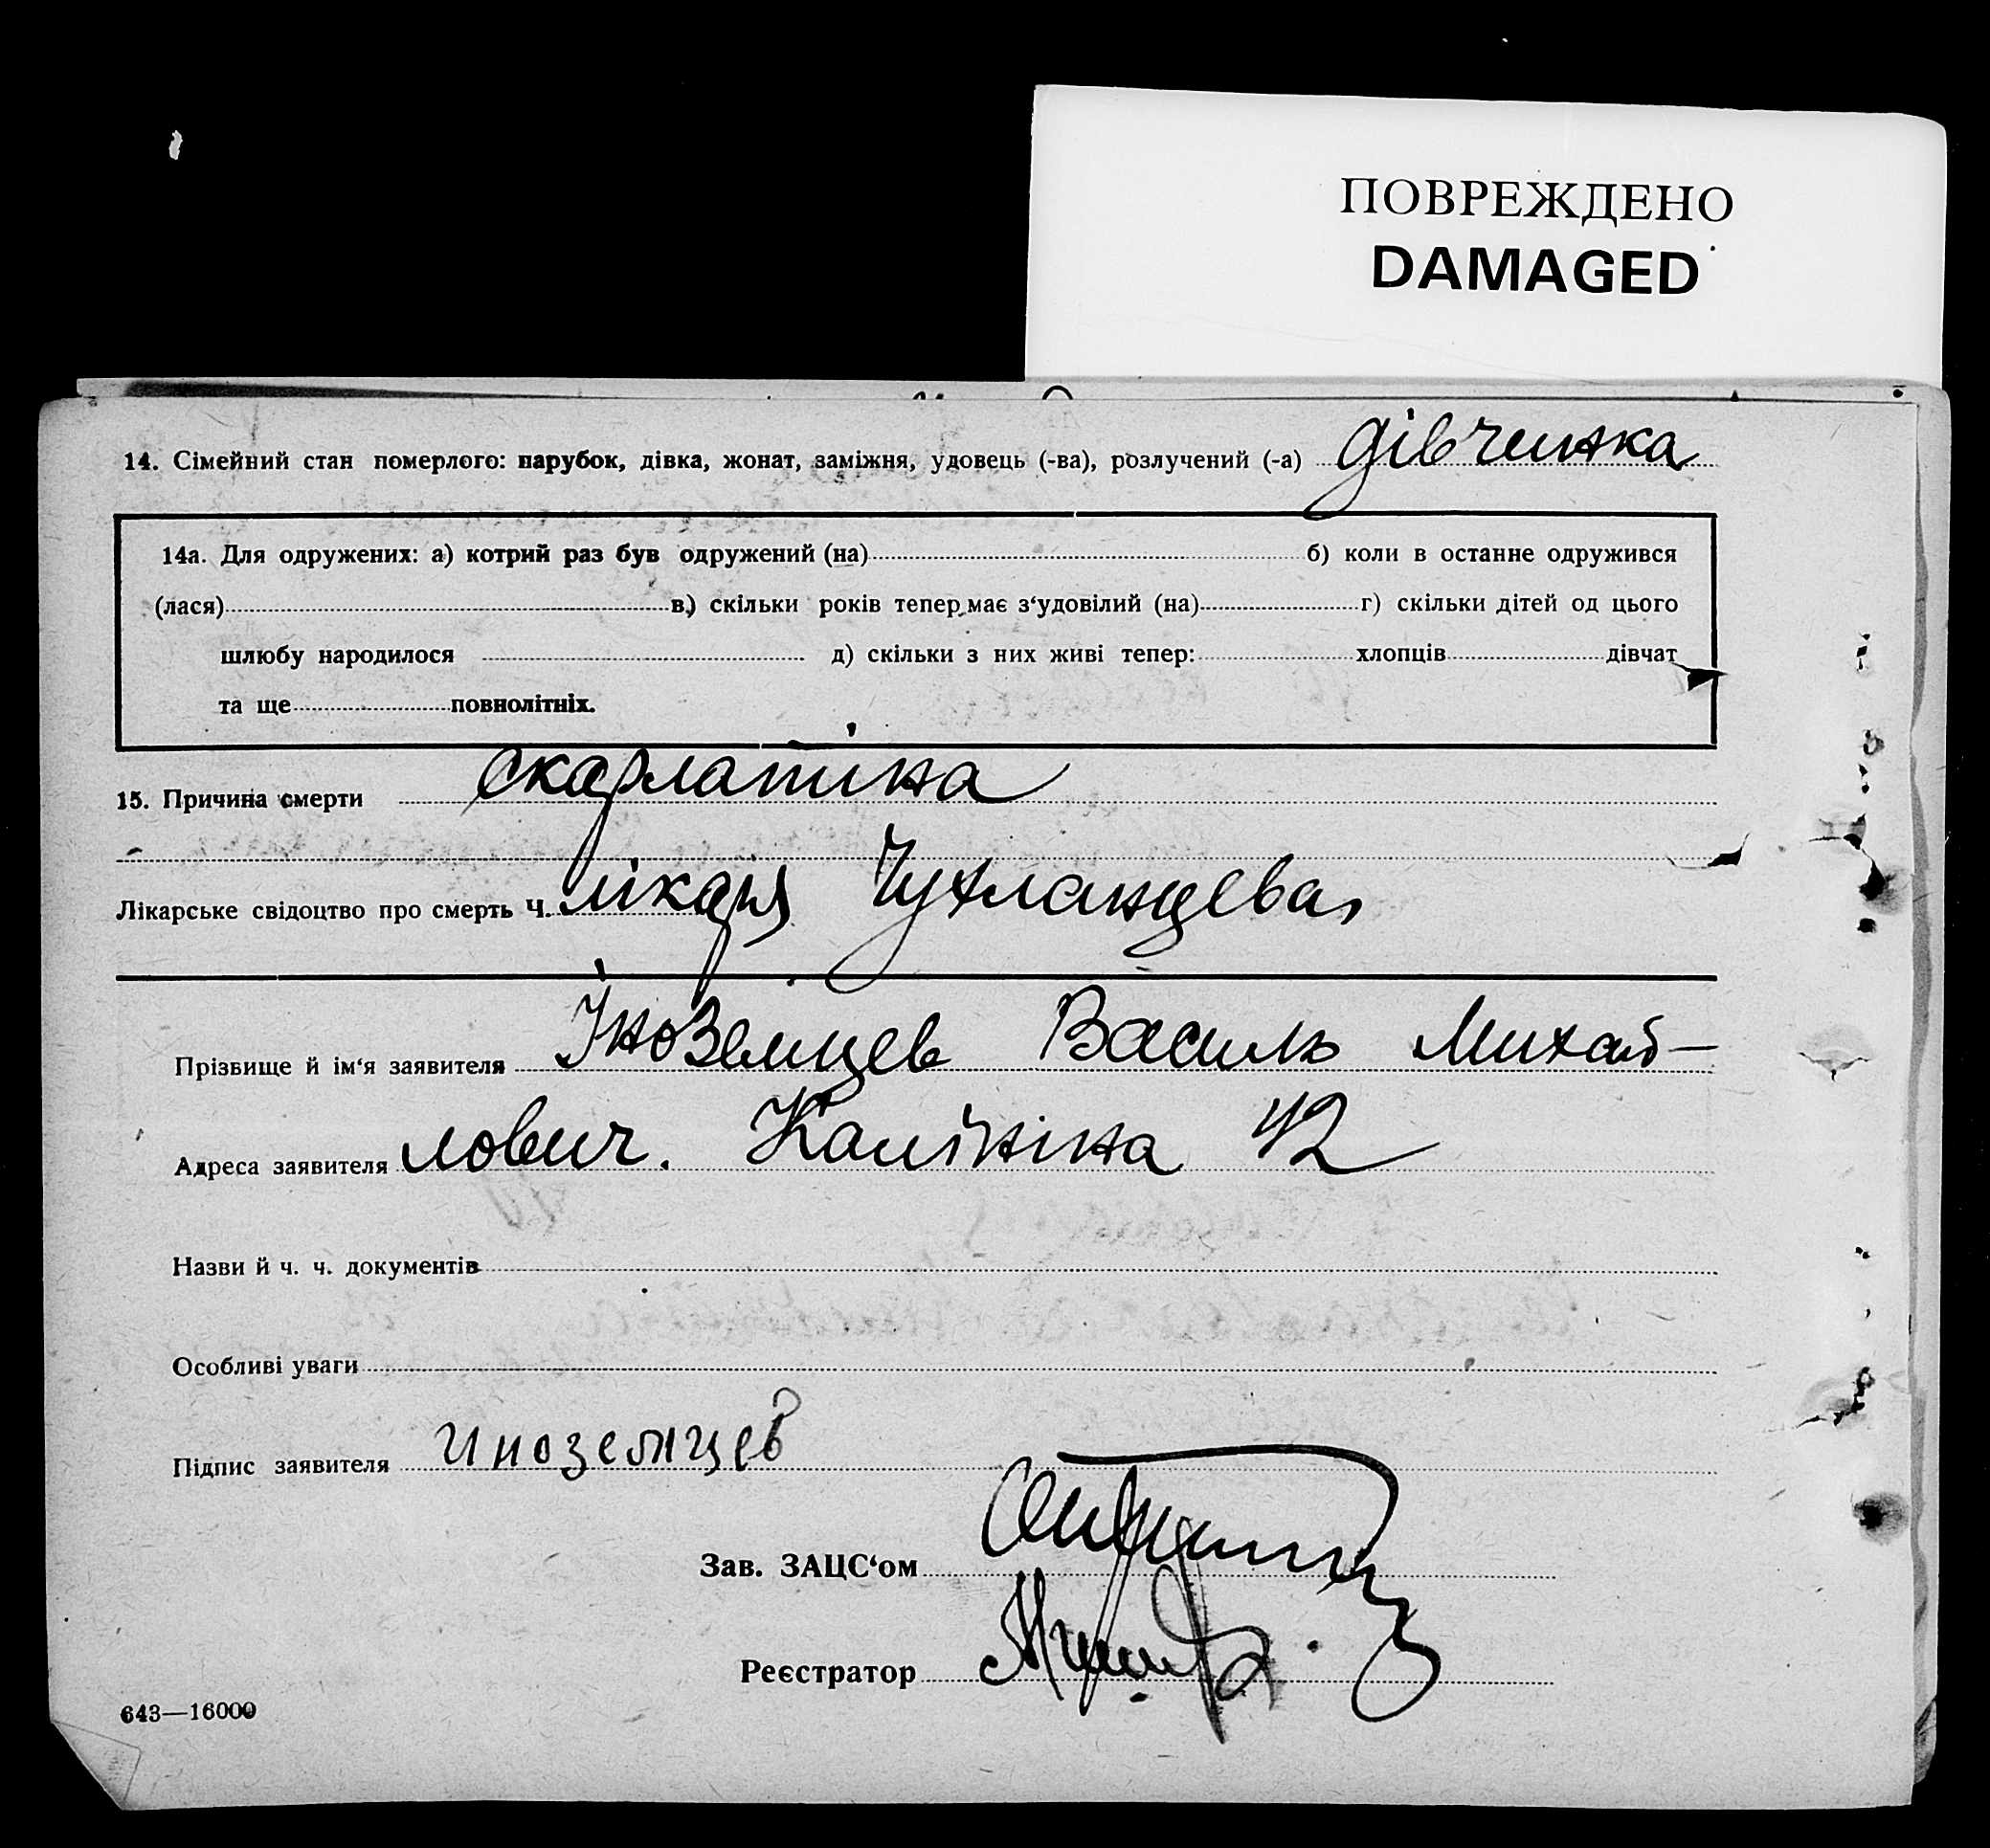 ПОВРЕЖДЕНО
DAMAGED
14. Сімейний стан померлого: парубок, дівка, жонат, заміжня, удовець (-ва), розлучений (-а) дівчинка
14а. Для одружених: а) котрий раз був одружений (на) б) коли в останне одружився
(лася) в) скільки років тепер має з‘удовілий (на) г) скільки дітей од цього
шлюбу народилося д) скільки з них живі тепер: хлопців дівчат
та ще повнолітніх.
15. Причина смерти скарлатіна
Лікарське свідоцтво про смерть Ч. лікаря Чухланцева
Прізвище й ім‘я заявителя Іноземцев Василь Михай-
Адреса заявителя лович. Калініна 42
Назви й ч. ч. документів
Особливі уваги
Підпис заявителя Иноземцев
Зав. ЗАЦС‘ом
Реєстратор
643—16000